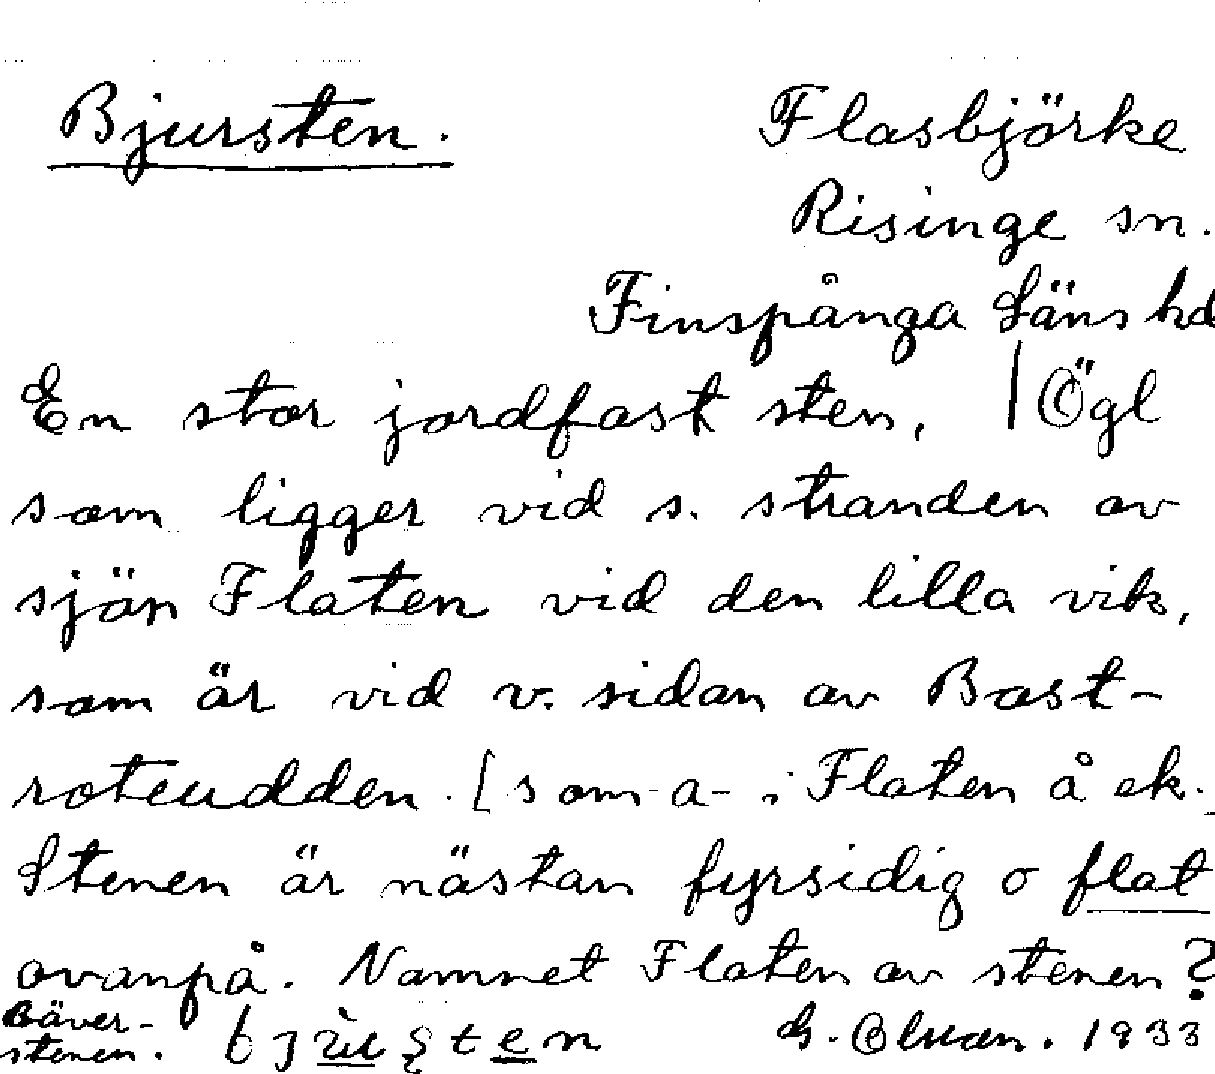 Bjursten. Flasbjörke
Risinge sn.
Finspånga Läns hd
En stor jordfast sten, | Ögl
som ligger vid s. stranden av
sjön Flaten vid den lilla vik,
som är vid v. sidan av Bast-
roteudden. [som -a- i Flaten å ek.]
Stenen är nästan fyrsidig o flat
ovanpå. Namnet Flaten av stenen?
Bäver-
stenen. 1933